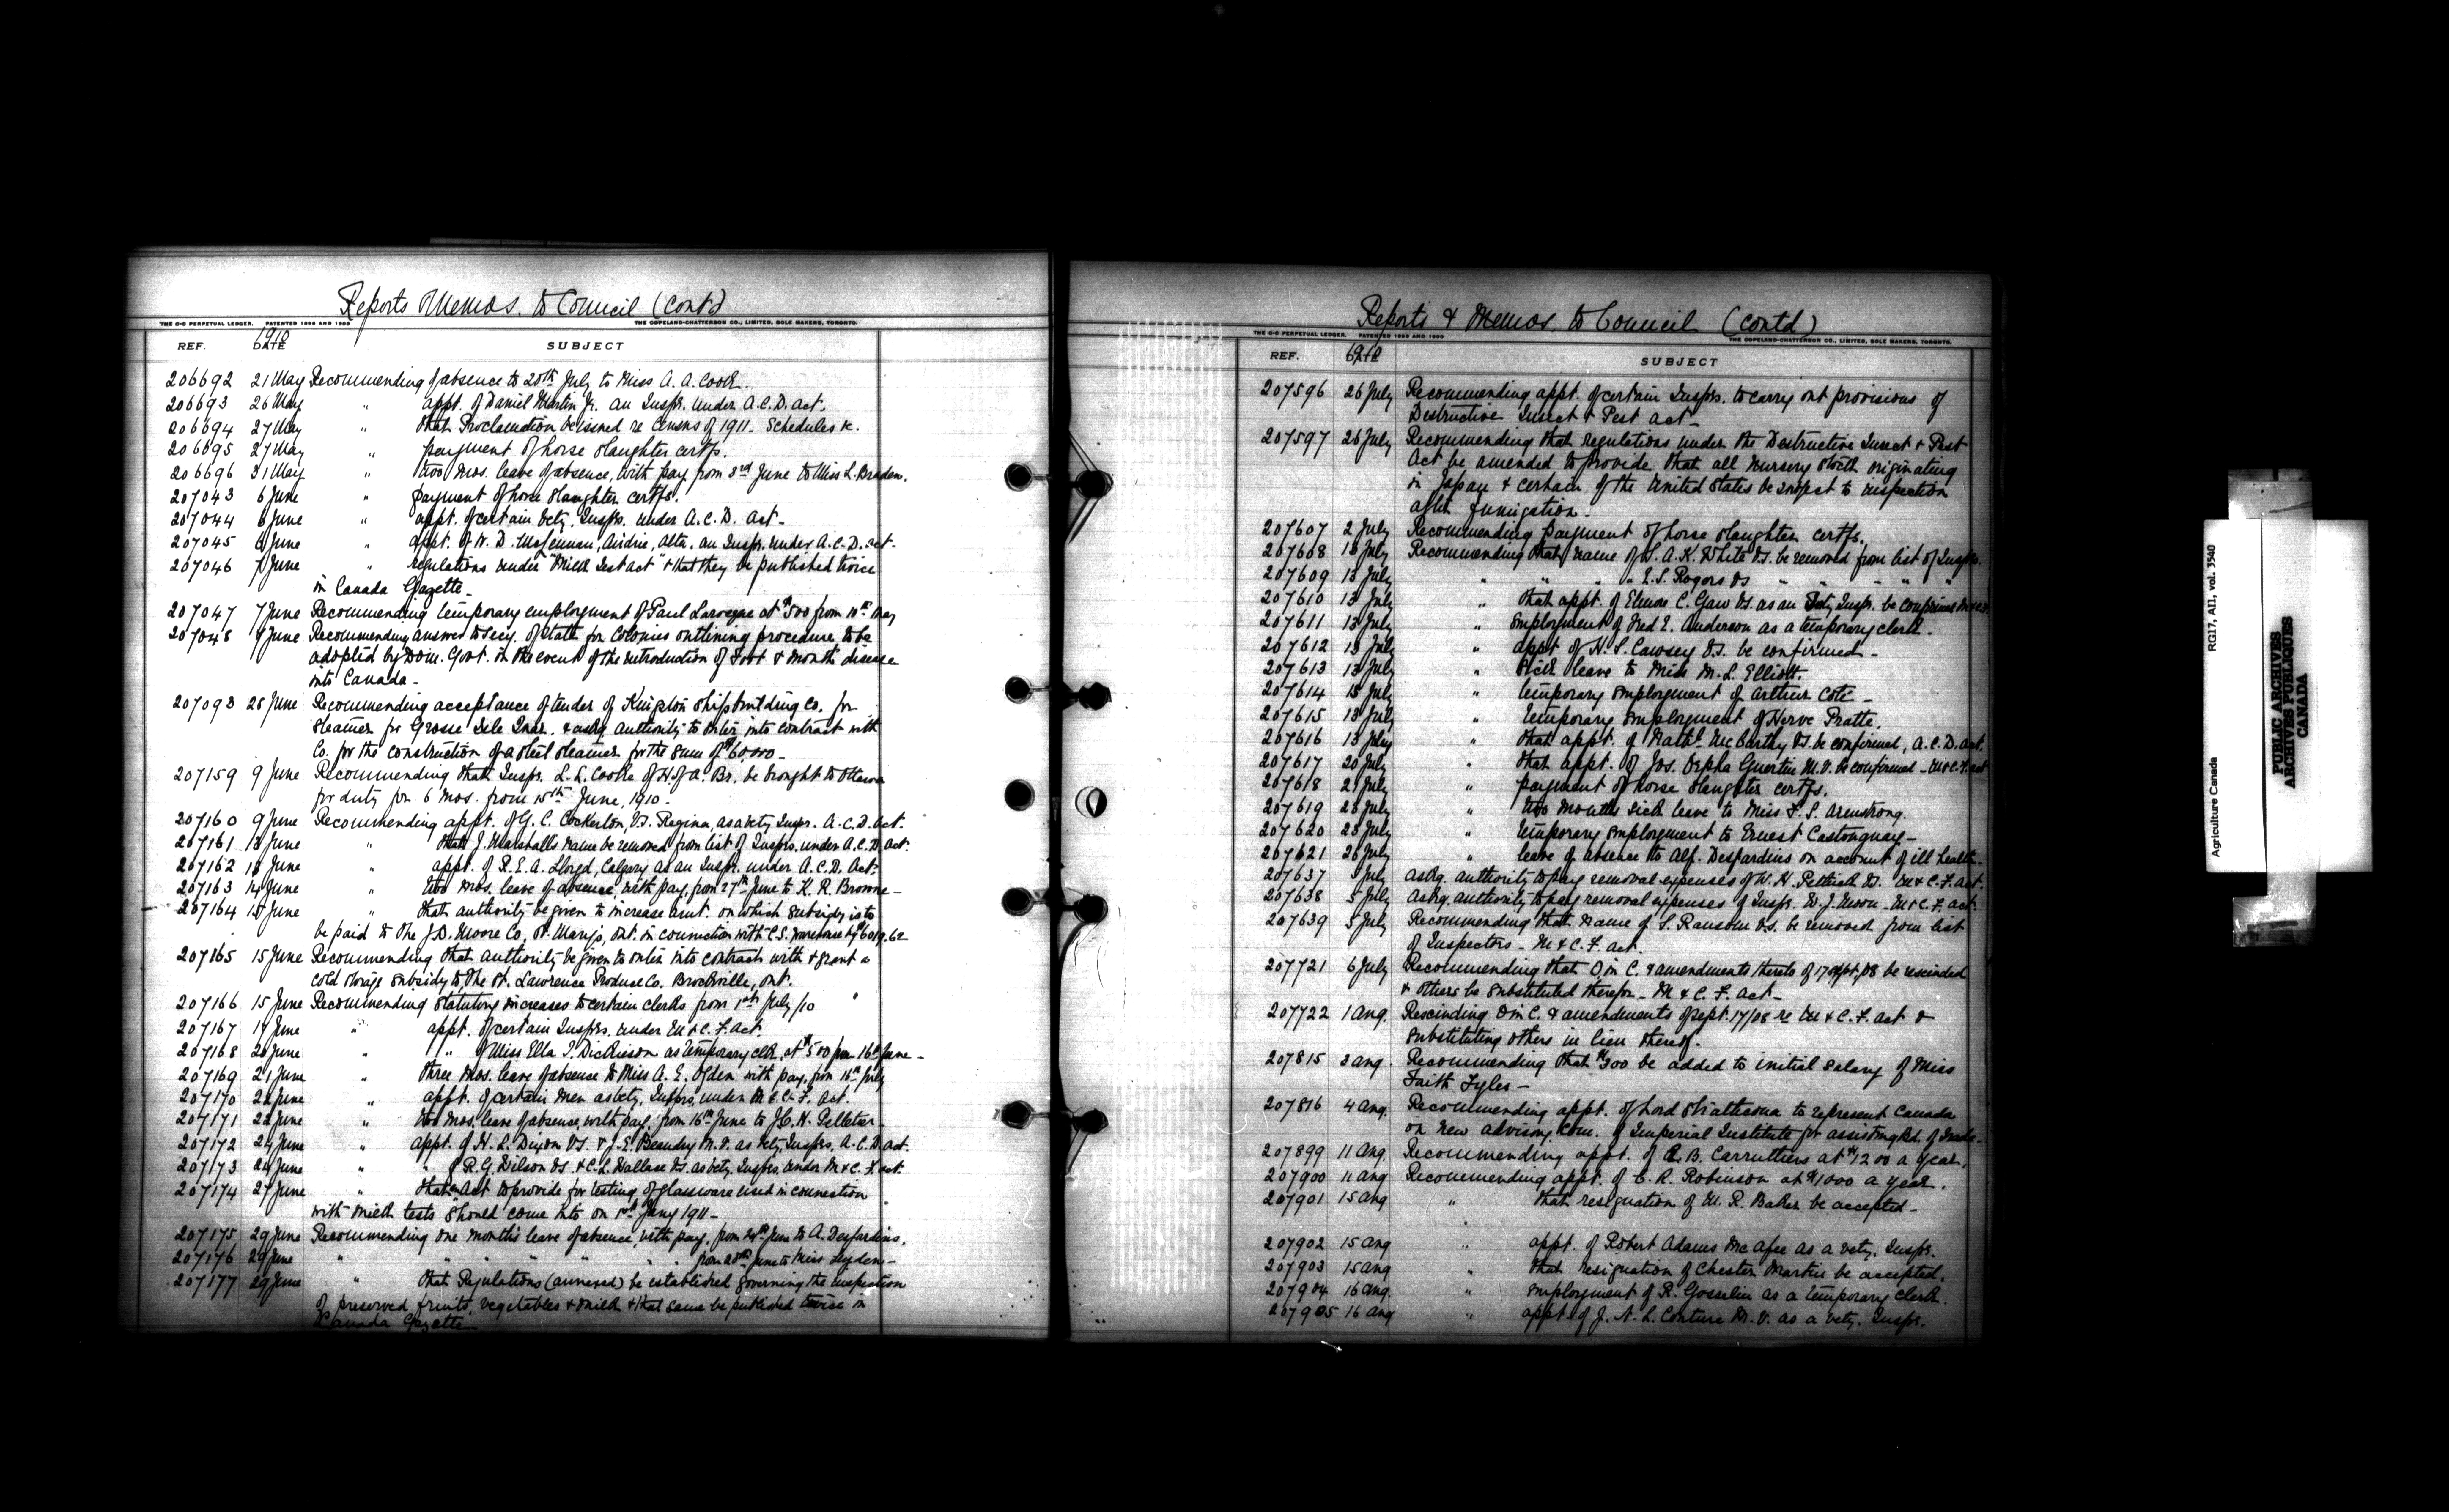 Reports & Memos. to Council (Cont)
THE C-C PERPETUAL LEDGER. PATENTED 1906 AND 1909 THE COPELAND-CHATTERSON CO., LIMITED, SOLE MAKERS, TORONTO.
REF. 1910 DATE SUBJECT
206692 21 May Recommending of absence to 20th July to Miss A. A. Cook.
206693 26 May " appt. of Daniel Martin Jr. an Inspr. under A.C.D. Act.
206694 27 May " that Proclamation be issued re Census of 1911. Schedules &c.
206695 27 May " payment of horse slaughter certfs.
206696 31 May " two mos. leave of absence, with pay from 3rd June to Miss L. Braden.
207043 6 June " payment of horse slaughter certfs.
207044 6 June " appt. of certain vety. Insprs. under A.C.D. Act-
207045 6 June " appt. of W. D. McLennan, Airdrie, Alta. an Inspr. under A.C.D. Act-
207046 7 June " regulations under "Milk Test Act" & that they be published twice
in Canada Gazette-
207047 7 June Recommending temporary employment of Paul at $500 from 10th May
207048 9 June Recommending answer to Secy. of State for Colonies outlining procedure to be
adopted by Dom. Govt. in the event of the introduction of Foot & Mouth disease
into Canada-
207093 28 June Recommending acceptance of tender of Kingston Shipbuilding Co. for
Steamer for Grosse Isle Quar. & askg. authority to enter into contract with
Co. for the construction of a steel steamer for the sum of $60,000-
207159 9 June Recommending that Inspr. L. L. Cooke of H. of A. Br. be brought to Ottawa
for duty for 6 mos. from 15th June, 1910.
207160 9 June Recommending appt. of G. C. Cockerton, V.S. Regina, as a vety Inspr. A.C.D. Act.
207161 13 June " that J. Marshalls name be removed from list of Insprs. under A.C.D. Act.
207162 13 June " appt. of R. E. A. Lloyd, Calgary as an Inspr. under A.C.D. Act.
207163 14 June " two mos. leave of absence, with pay, from 27th June to K. R. Browne-
207164 15 June " that authority be given to increase amt. on which subsidy is to
be paid to the J.D. Moore Co, St. Marys, Ont. in connection with C.S. warehouse by $6019.62
207165 15 June Recommending that authority be given to enter into contract with & grant a
cold storage subsidy to the St. Lawrence Produce Co. Brockville, Ont.
207166 15 June Recommending statutory increases to certain clerks from 1st July/10 "
207167 17 June " appt. of certain Insprs. under M & C. F. Act.
207168 20 June " " of Miss Ella J. Dickieson as temporary clk. at $500 from 16th June-
207169 21 June " three mos. leave of absence to Miss A. E. Ogden with pay, from 16th July
207170 22 June " appt. of certain men as vety. Insprs. under M & C. F. Act.
207171 22 June " two mos. leave of absence with pay, from 16th June to J.C.H. Pelletier-
207172 24 June " appt. of H. L. Dixon V.S. & J. E. Beaudry M.V. as vety. Insprs. A.C.D. Act.
207173 24 June " " of R. G. Wilson V.S. & C. L. Wallace V.S. as vety. Insprs. under M & C. F. Act.
207174 27 June " that an Act to provide for testing of glassware used in connection
with milk tests should come into on 1st Jany 1911-
207175 29 June Recommending one months leave of absence, with pay, from 24th June to A. Desjardins.
207176 29 June " " " " " " from 28th June to Miss Lyden-
207177 29 June " that Regulations (annexed) be established governing the inspection
of preserved fruits, vegetables & milk & that same be published twice in
Canada Gazette
Reports & Memos to Council (contd)
THE C-C PERPETUAL LEDGER. PATENTED 1906 AND 1909 THE COPELAND-CHATTERSON CO., LIMITED, SOLE MAKERS, TORONTO.
REF. 1910 DATE SUBJECT
207596 26 July Recommending appt. of certain Insprs. to carry out provisions of
Destructive Insect & Pest Act-
207597 26 July Recommending that regulations under the Destructive Insect & Pest
Act be amended to provide that all nursery stock originating
in Japan & certain of the United States be subject to inspection
after fumigation.
207607 2 July Recommending payment of horse slaughter certfs.
207608 13 July Recommending that name of L. A. K. White V.S. be removed from list of Insprs.
207609 13 July " " " " E. S. Rogers V.S. " " " " "
207610 13 July " that appt. of Elmore C. Gaw V.S. as an Vety Inspr. be confirmed M & C.F.
207611 13 July " employment of Fred E. Anderson as a temporary clerk-
207612 13 July " appt of H. S. Cawsey V.S. be confirmed-
207613 13 July " sick leave to Miss M. L. Elliott.
207614 15 July " temporary employment of Arthur Coté-
207615 13 July " temporary employment of Herve Pratte.
207616 13 July " that appt. of Nathl. McCarthy V.S. be confirmed, A.C.D. Act.
207617 20 July " that appt. of Jos. Orpha Guertin M.V. be confirmed - M & C.F. Act
207618 21 July " payment of horse slaughter certfs.
207619 23 July " two months sick leave to Miss F. S. Armstrong.
207620 23 July " temporary employment to Ernest Castonguay-
207621 26 July " leave of absence to Alf. Desjardins on account of ill health-
207637 5 July askg. authority to pay removal expenses of W. H. Pethick V.S. M & C.F. Act.
207638 5 July Askg. authority to pay removal expenses of Inspr. W. J. Moon - M & C. F. Act
207639 5 July Recommending that name of S. Ransom V.S. be removed from list
of Inspectors - M & C. F. Act.
207721 6 July Recommending that O. in C. & amendments thereto of 17 Sept/08 be rescinded
& others be substituted therefor - M & C. F. Act-
207722 1 Aug. Rescinding O in C. & amendments of Sept. 17/08 re M & C. F. Act &
substituting others in lieu thereof-
207815 3 Aug. Recommending that $300 be added to initial salary of Miss
Faith Fyles-
207816 4 Aug. Recommending appt. of Lord Strathcona to represent Canada
on new advisory Com. of Imperial Institute for assisting Bd. of Trade-
207899 11 Aug. Recommending appt. of A. B. Carruthers at $1200 a year.
207900 11 Aug Recommending appt. of C. R. Robinson at $1000 a year.
207901 15 Aug " that resignation of M. R. Baker be accepted-
207902 15 Aug " appt. of Robert Adams McAfee as a vety. Inspr.
207903 15 Aug " that resignation of Chester Martin be accepted.
207904 16 Aug. " employment of R. Gosselin as a temporary clerk.
207905 16 Aug " appt of J. N. L. Couture M.V. as a vety. Inspr.
Agriculture Canada RG17, AII, vol. 3540
PUBLIC ARCHIVES
ARCHIVES PUBLIQUES
CANADA